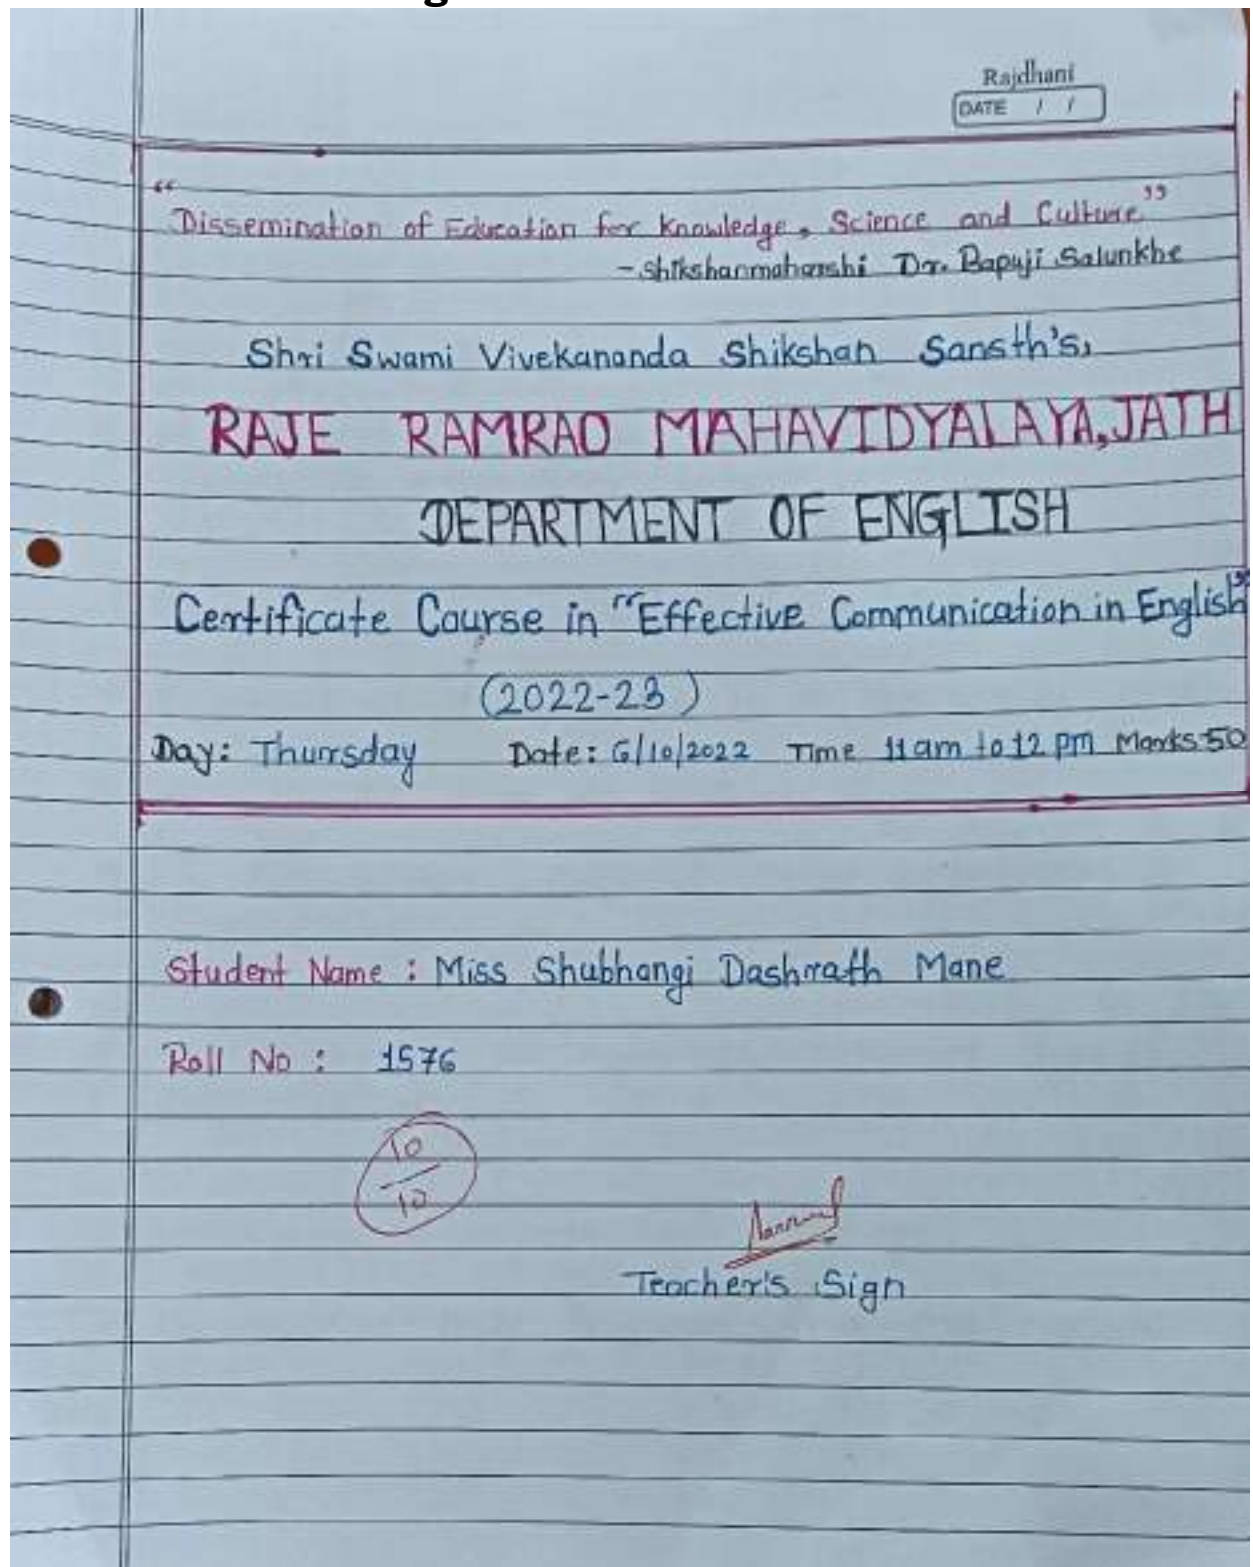 Rajdhani
DATE / /
"Dissemination of Education for Knowledge, Science and Culture"
- Shikshanmaharshi Dr. Bapuji Salunkhe
Shri Swami Vivekananda Shikshan Sansth's,
RAJE RAMRAO MAHAVIDYALAYA, JATH
DEPARTMENT OF ENGLISH
Certificate Course in "Effective Communication in English"
(2022-23)
Day: Thursday Date: 6/10/2022 Time 11am to 12 pm Marks 50
Student Name : Miss Shubhangi Dashrath Mane
Roll No : 1576
10
10
Teacher's Sign